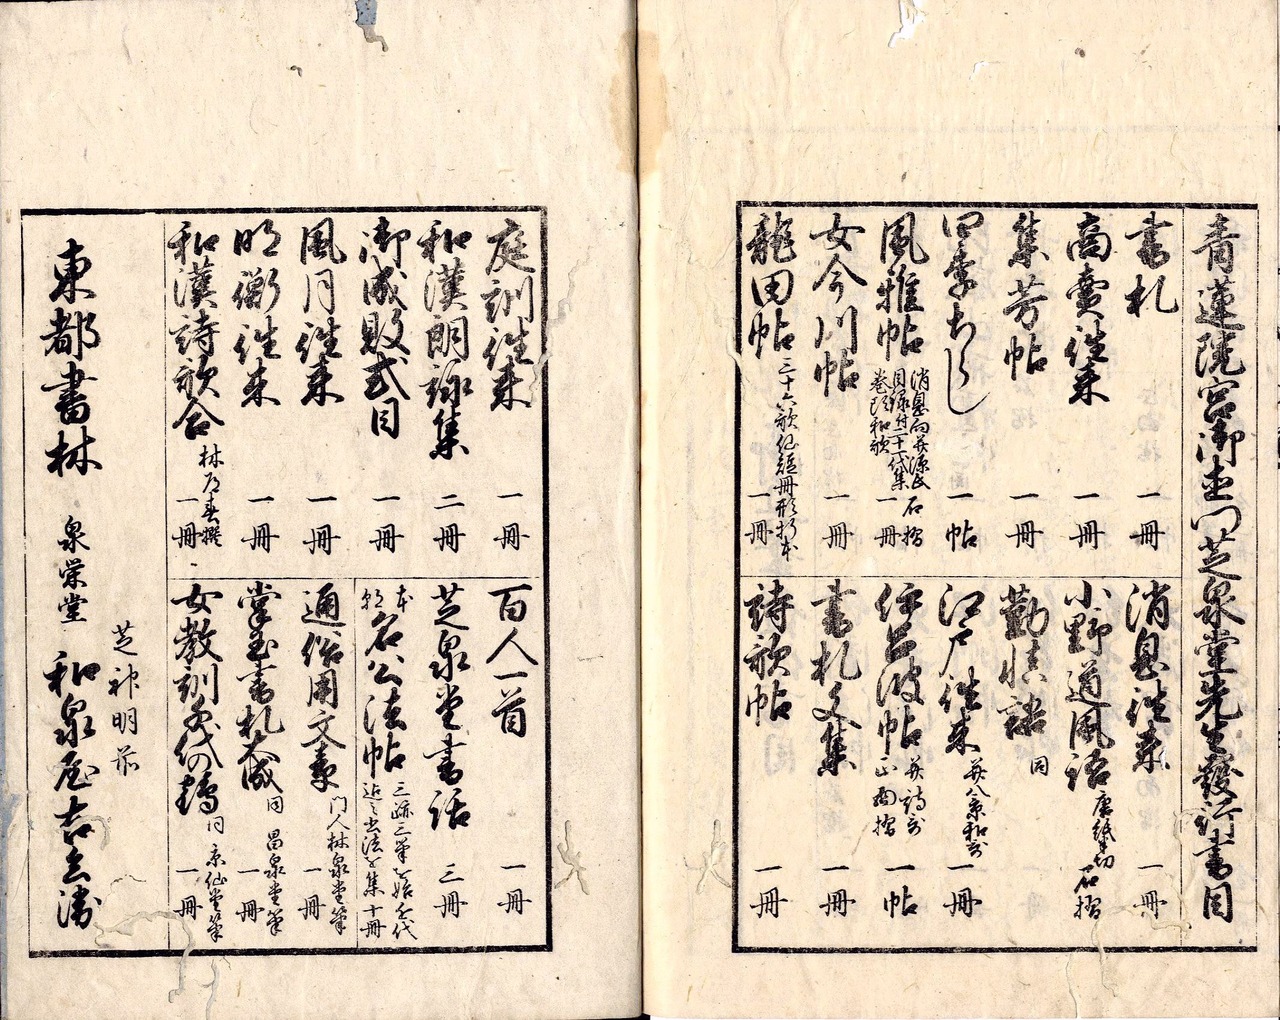 青蓮院宮御直門芝泉堂先生發行書目
書札 一冊
商賣往来 一冊
集芳帖 一冊
四季あらし 一帖
風雅帖 消息向并源氏目録付二十一代集巻頭和歌 石摺 一冊
女今川帖 一冊
龍田帖 三十六歌仙短冊形折本 一冊
消息往来 一冊
小野道風詩 唐紙半切 石摺
勤慎諸 同
江戸往来 并八景和哥 一冊
伊呂波帖 并詩哥 正面摺 一帖
書札文集 一冊
詩歌帖 一冊
庭訓往来 一冊
和漢朗詠集 二冊
御成敗式目 一冊
風月往来 一冊
明衡往来 一冊
和漢詩歌合 林道春撰 一冊
百人一首 一冊
芝泉堂書話 三冊
本朝名公法帖 三跡三筆を始め近代迄之書法を集 十冊
通俗用文章 門人林泉堂筆 一冊
掌玉書札大成 同 昌泉堂筆 一冊
女教訓八代の鏡 同 京仙堂筆 一冊
東都書林 泉栄堂 芝神明前 和泉屋吉兵衛